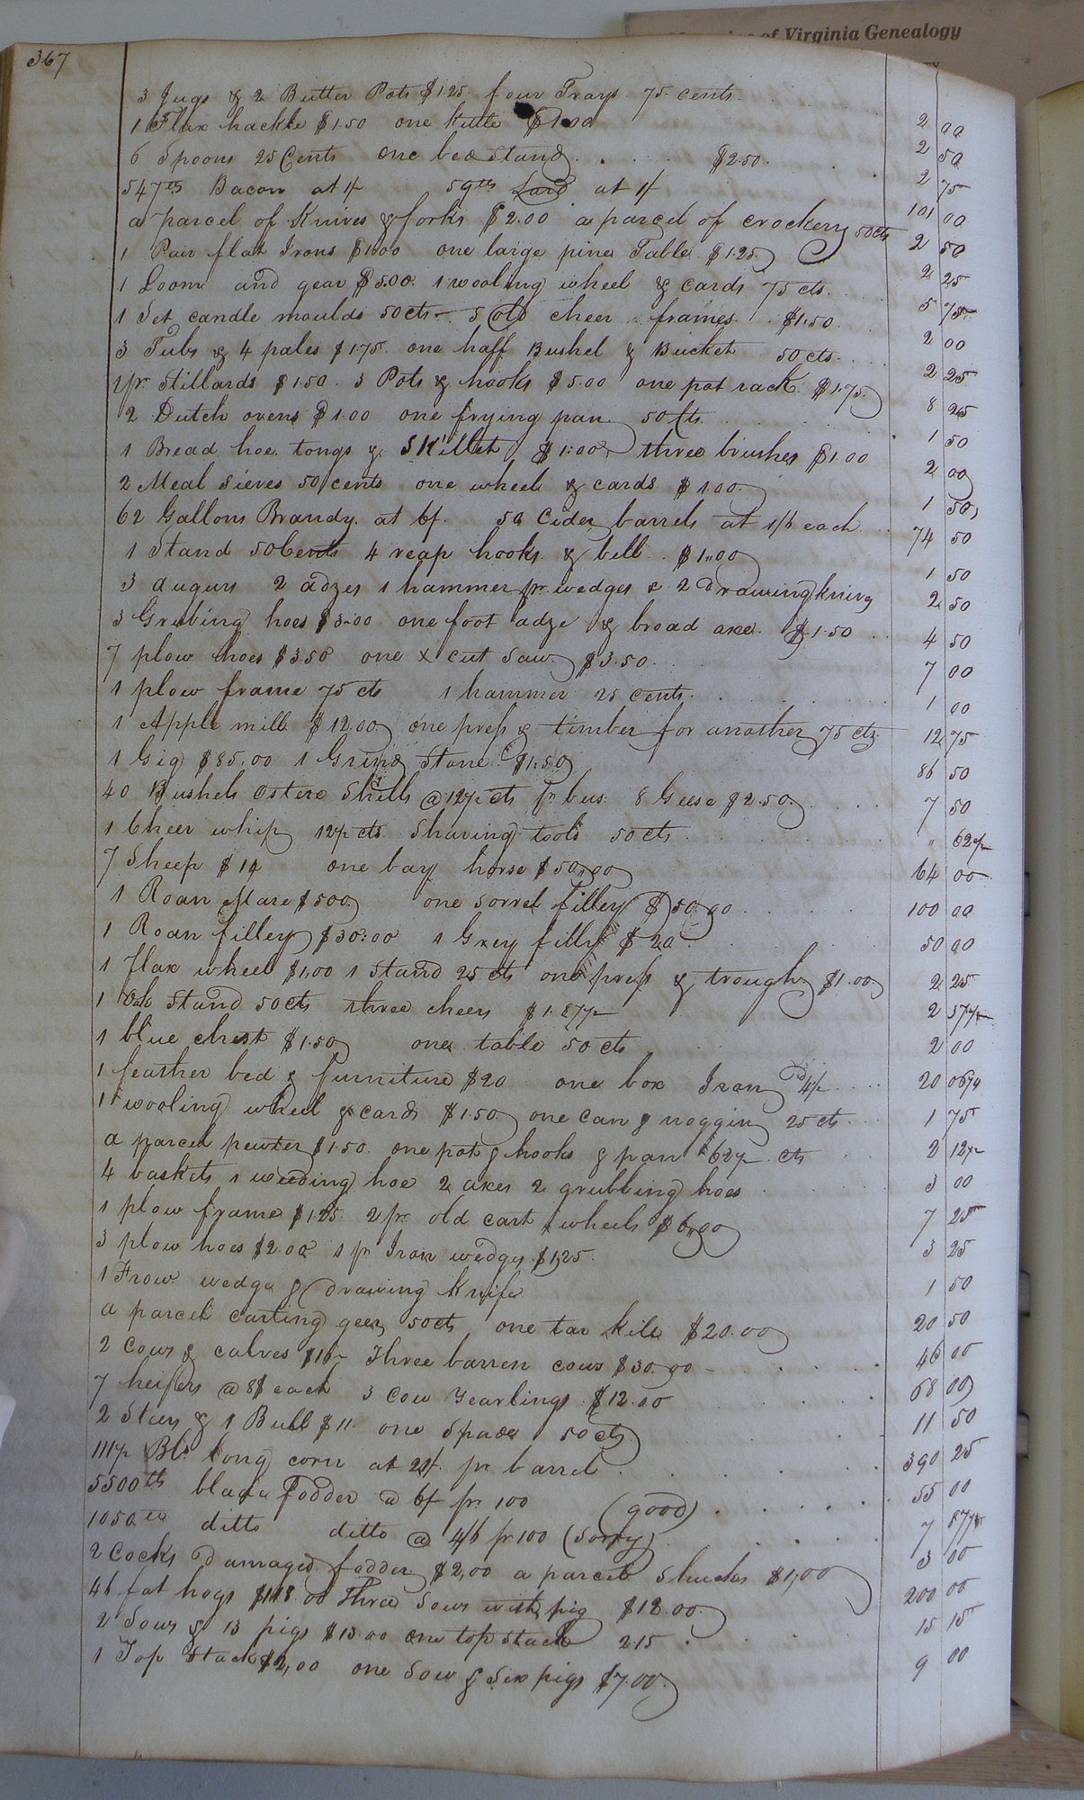 of Virginia Genealogy
367
3 Jugs & 2 Butter Pots $1.25 four Trays 75 cents 2 00
1 Flax hackle $1.50 one kettle $1.00 2 50
6 Spoons 25 Cents one bed stand $2.50. 2 75
547 lbs Bacon at 1/ 59 lbs Lard at 1/ 101 00
a parcel of Knives & forks $2.00 a parcel of crockery 50 cts 2 50
1 Pair flat Irons $1.00 one large pine Table $1.25 2 25
1 Loom and gear $5.00. 1 wooling wheel & cards 75 cts. 5 75
1 Set candle moulds 50 cts - 5 old cheer frames $1.50 2 00
3 Tubs & 4 pales $1.75. one half Bushel & Bucket 50 cts. 2 25
1 pr. Stillards $1.50. 3 Pots & hooks $5.00 one pot rack $1.75. 8 25
2 Dutch ovens $1.00 one frying pan 50 Cts. 1 50
1 Bread hoe tongs & Skillet $1.00 three brushes $1.00 2 00
2 Meal Sieves 50 cents one wheel & cards $1.00. 1 50
62 Gallons Brandy at 6/. 50 Cider barrels at 1/6 each 74 50
1 Stand 50 Cents 4 reap hooks & bell $1.00 1 50
3 augurs 2 adzes 1 hammer pr. wedges & 2 drawing knives 2 50
3 Grubing hoes $3.00 one foot adze & broad axe $1.50 4 50
7 plow hoes $3.50 one x cut Saw $3.50. 7 00
1 plow frame 75 cts 1 hammer 25 cents. 1 00
1 Apple mill $12.00 one press & timber for another 75 cts 12 75
1 Gig $85.00 1 Grind Stone $1.50 86 50
40 Bushels oster Shells @ 12½ cts pr bus. 8 Geese $2.50. 7 50
1 Cheer whip 12½ cts Shaving tools 50 cts " 62½
7 Sheep $14 one bay horse $50.00 64 00
1 Roan Mare $50 one sorrel filley $50.00 100 00
1 Roan filley $30.00 1 Grey filly $20 50 00
1 flax wheel $1.00 1 Stand 25 cts one press & trough $1.00 2 25
1 Stand 50 cts three cheers $1.87½ 2 37½
1 blue chest $1.50 one table 50 cts 2 00
1 feather bed & furniture $20 one box Iron 20
1 wooling wheel & cards $1.50 one can & noggin 25 cts 1 75
a parcel pewter $1.50. one pot & hooks & pan 62½ cts 2 12½
4 baskets 1 weeding hoe 2 axes 2 grubbing hoes 3 00
1 plow frame $1.25 2 pr old cart wheels $6.00 7 25
3 plow hoes $2.00 1 pr Iron wedges $1.25. 3 25
1 Frow wedge & drawing Knife 1 50
a parcel carting geer 50 cts one tar kiln $20.00 20 50
2 Cows & calves $16 - Three barren cows $30.00 - 46 00
7 heifers @ 8$ each 3 Cow Yearlings $12.00 68 00
2 Steers & 1 Bull $11. one Spade 50 cts 11 50
111½ Bls long corn at 21/. pr barrel 390 25
5500 lb blade Fodder @ 6/ pr. 100 (good) 55 00
1050 lb ditto ditto @ 4/6 pr 100 (Sorry) 7 87½
2 Cocks Damaged fodder $2,00 a parcel Shucks $1,00 3 00
46 fat hogs $188.00 Three Sows with pig $12.00. 200 00
2 Sows & 13 pigs $13.00 one top stack 2.15 15 15
1 Top Stack $2,00 one Sow & Six pigs $7.00. 9 00